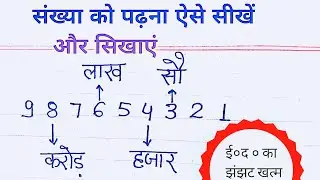 संख्या को पढ़ना ऐसे सीखें
और सिखाएं
लाख सौ
9 8 7 6 5 4 3 2 1
करोड़ हजार
ई०द ० का
झंझट खत्म